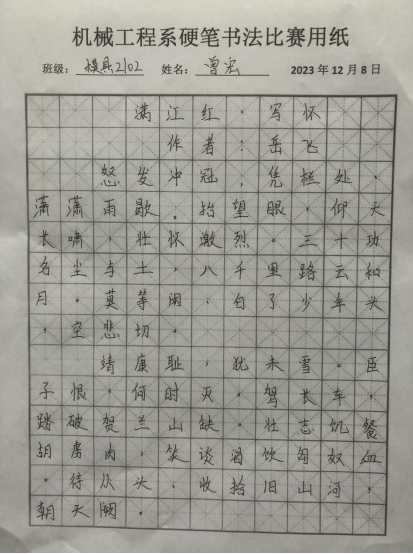 机械工程系硬笔书法比赛用纸
班级：模具2102 姓名：曾宏 2023年12月8日
满江红·写怀
作者：岳飞
怒发冲冠，凭栏处，
潇潇雨歇。抬望眼，仰天
长啸，壮怀激烈。三十功
名尘与土，八千里路云和
月。莫等闲、白了少年头
，空悲切。
靖康耻，犹未雪。臣
子恨，何时灭。驾长车，
踏破贺兰山缺。壮志饥餐
胡虏肉，笑谈渴饮匈奴血
。待从头、收拾旧山河，
朝天阙。